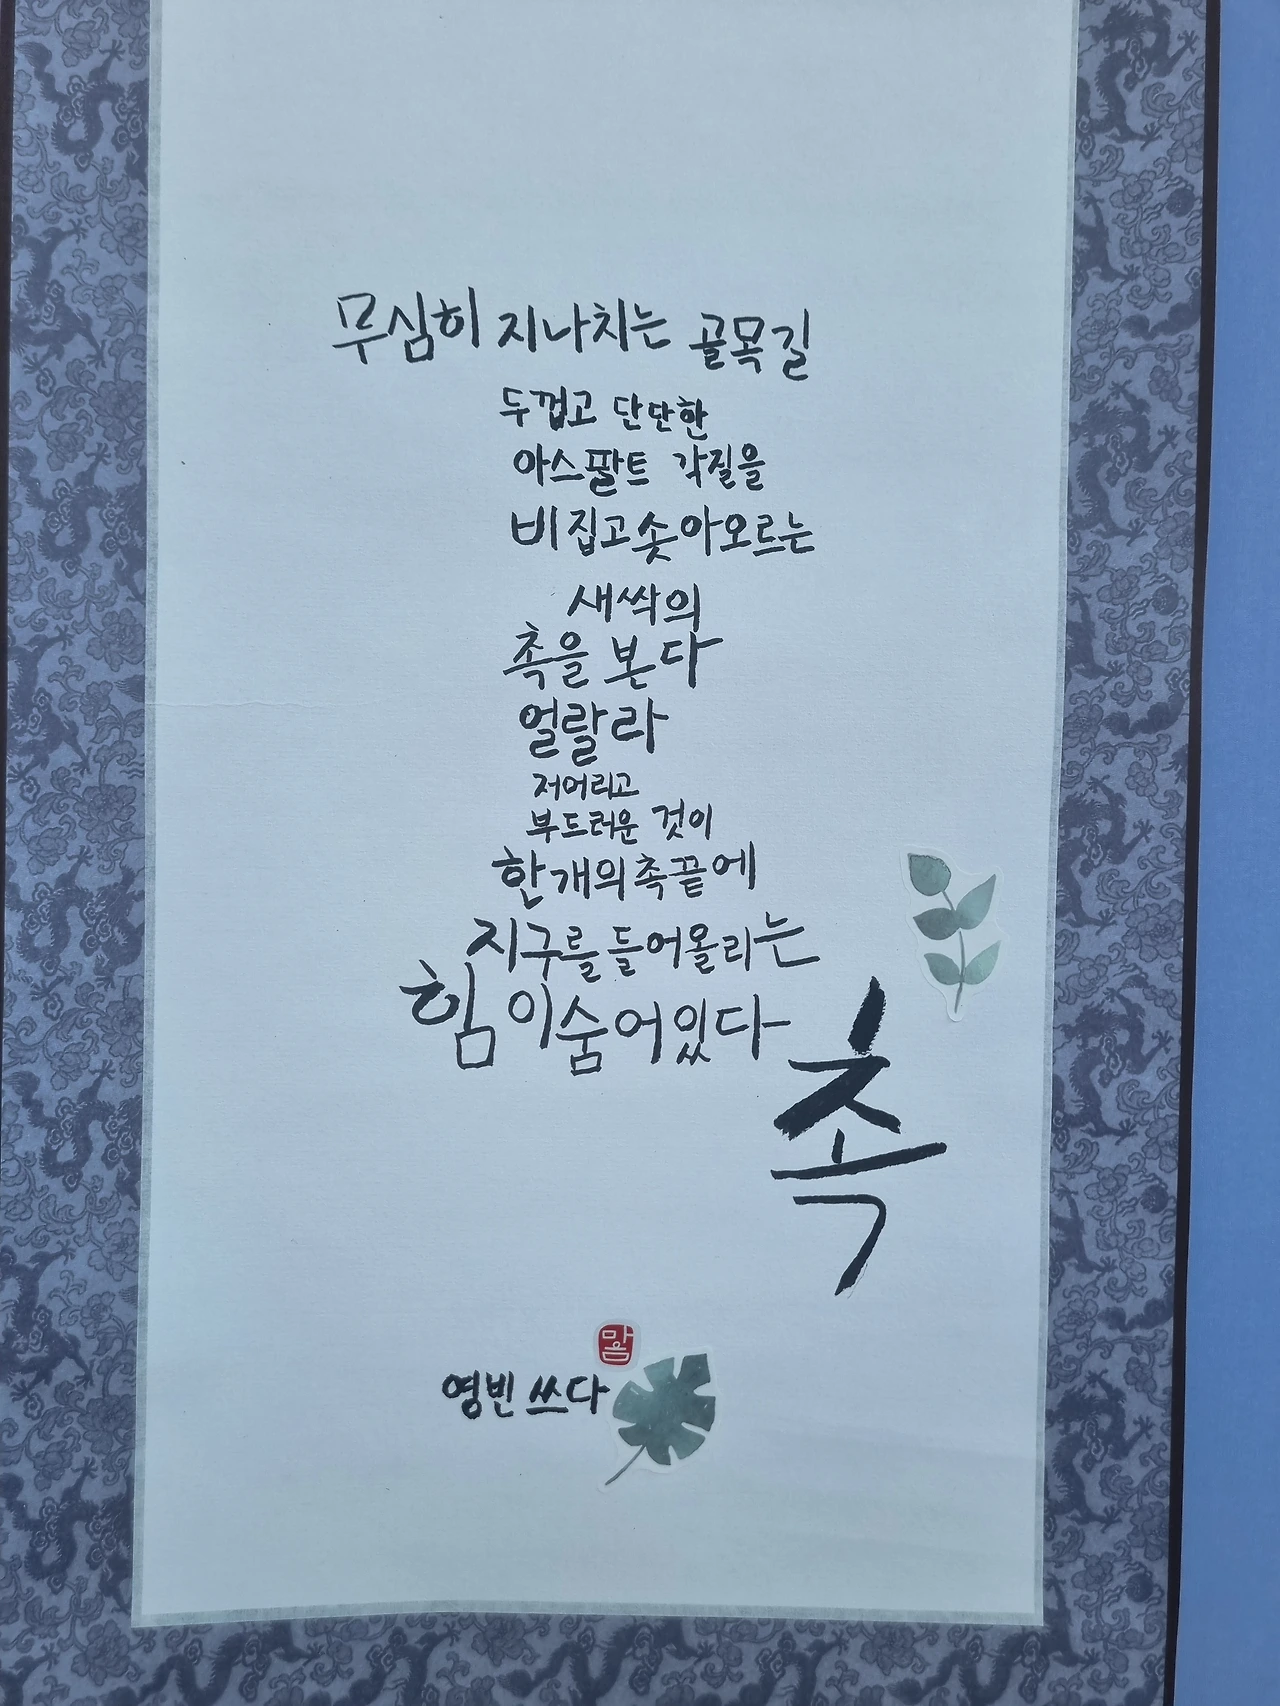 무심히 지나치는 골목길
두껍고 단단한
아스팔트 각질을
비집고 솟아오르는
새싹의
촉을 본다
얼랄라
저 어리고
부드러운 것이
한 개의 촉 끝에
지구를 들어올리는
힘이 숨어 있다
촉
마음
영빈 쓰다